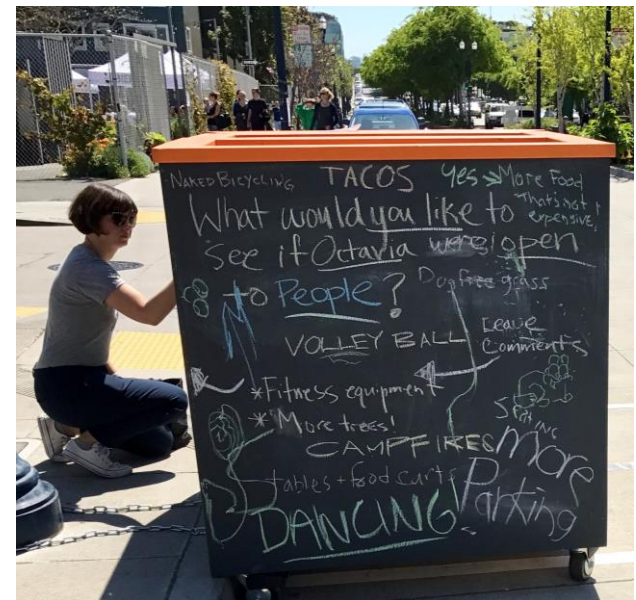 NAKED BICYCLING
TACOS
Yes → More Food
That's not
expensive!
What would you like to
see if Octavia were open
to People?
Dog free grass
VOLLEY BALL
Leave
Comments
*Fitness equipment
*More trees!
CAMPFIRES
tables + food carts
DANCING!
More
Parking